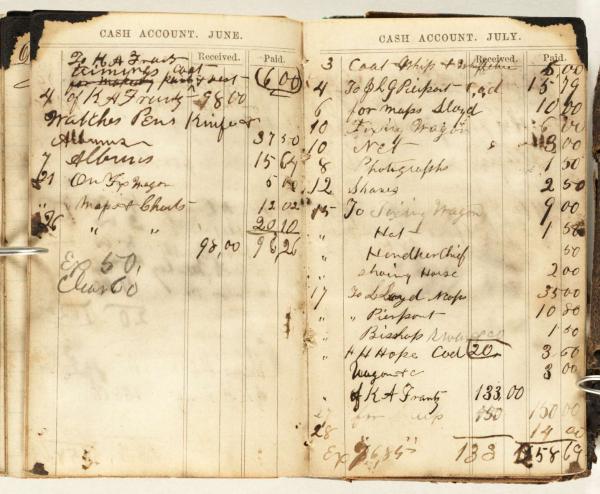 CASH ACCOUNT. JUNE.
Received. Paid.
To K A Frantz
Coat
pants vest 6 00
4 of K A Frantz 98.00
Watches Pens Knife
Albums 37 50
7 Albums 15 64
21 On Fx Wagon 5
" Maps & Charts 12 02
26 " " 20 10
98,00 96,26
Ex 50,
Clear 60
CASH ACCOUNT. JULY.
Received. Paid.
3 Coat Whip & 5.00
4 To J & G Pierport 15 79
6 for maps Lloyd 10 00
10 Fixing Wagon 6 00
10 Net 3 00
8 Photographs 1 50
12 Shares 2 50
15 To Fixing Wagon 9 00
" Hat 1 50
" Hendkerchief 50
" shoing Horse 2 00
17 To L Loyd Maps 35 00
" " Pierport 10 80
" Bishop 1 50
" H Hope Cod 20 3 50
Wagon &c 3 00
" of K A Frantz 133,00
150 150 00
28 14 00
Ex 133 158 69